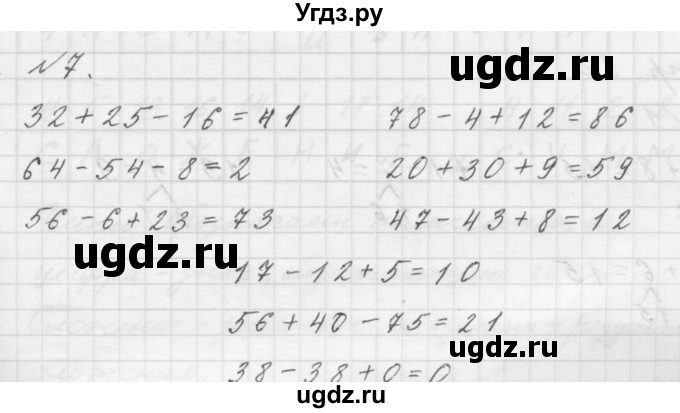 Угдз.ру
№7.
ugdz.ru
32+25-16=41 78-4+12=86
64-54-8=2 20+30+9=59
56-6+23=73 47-43+8=12
ugdz.ru
ugdz.ru
17-12+5=10
56+40-75=21
38-38+0=0
ugdz.ru
ugdz.ru